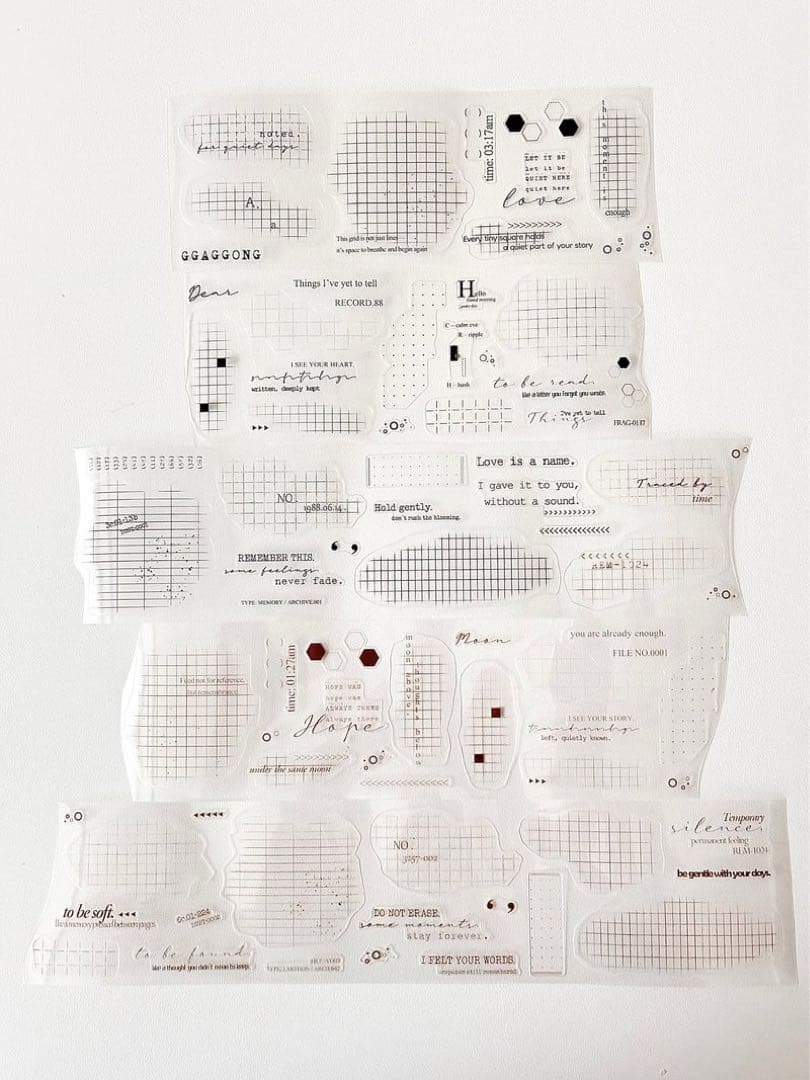 noted.
for quiet days
A.
n
GGAGGONG
This grid is not just lines
it's space to breathe and begin again
time: 03:17am
LET IT BE
let it be
QUIET HERE
quiet here
love
this moment is
enough
>>>>>>>>>>
Every tiny square holds
a quiet part of your story
Dear
Things I've yet to tell
RECORD.88
I SEE YOUR HEART.
written, deeply kept
Hello
C – calm eve
R – ripple
H – hush
to be read.
like a letter you forgot you wrote.
I've yet to tell
Things
FRAG-0187
NO.
1988.06.14.
REMEMBER THIS.
some feelings
never fade.
TYPE: MEMORY / ARCHIVE.001
Hold gently.
don't rush the blooming.
Love is a name.
I gave it to you,
without a sound.
>>>>>>>>>>>
<<<<<<<<<<<<<<
Traced by
time
<<<<<<<
REM-1024
Filed not for reference,
but remembrance.
time: 01:27am
HOPE WAS
hope was
ALWAYS THERE
always there
Hope
under the same moon
moon above.
thoughts below
Moon
you are already enough.
FILE NO.0001
I SEE YOUR STORY.
left, quietly known.
to be soft.
like a memory pressed between pages.
to be found.
like a thought you didn't mean to keep.
NO.
3257-002
DO NOT ERASE.
some moments
stay forever.
I FELT YOUR WORDS.
Temporary
silence.
permanent feeling
REM-1024
be gentle with your days.